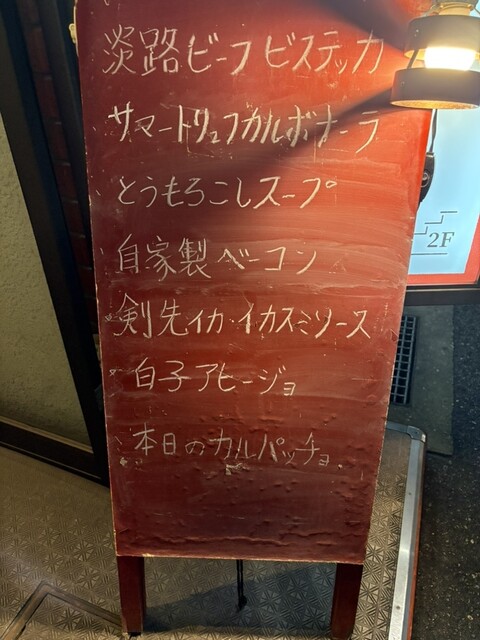 淡路ビーフビステッカ
サマートリュフカルボナーラ
とうもろこしスープ
自家製ベーコン
剣先イカ・イカスミソース
白子アヒージョ
本日のカルパッチョ
2F